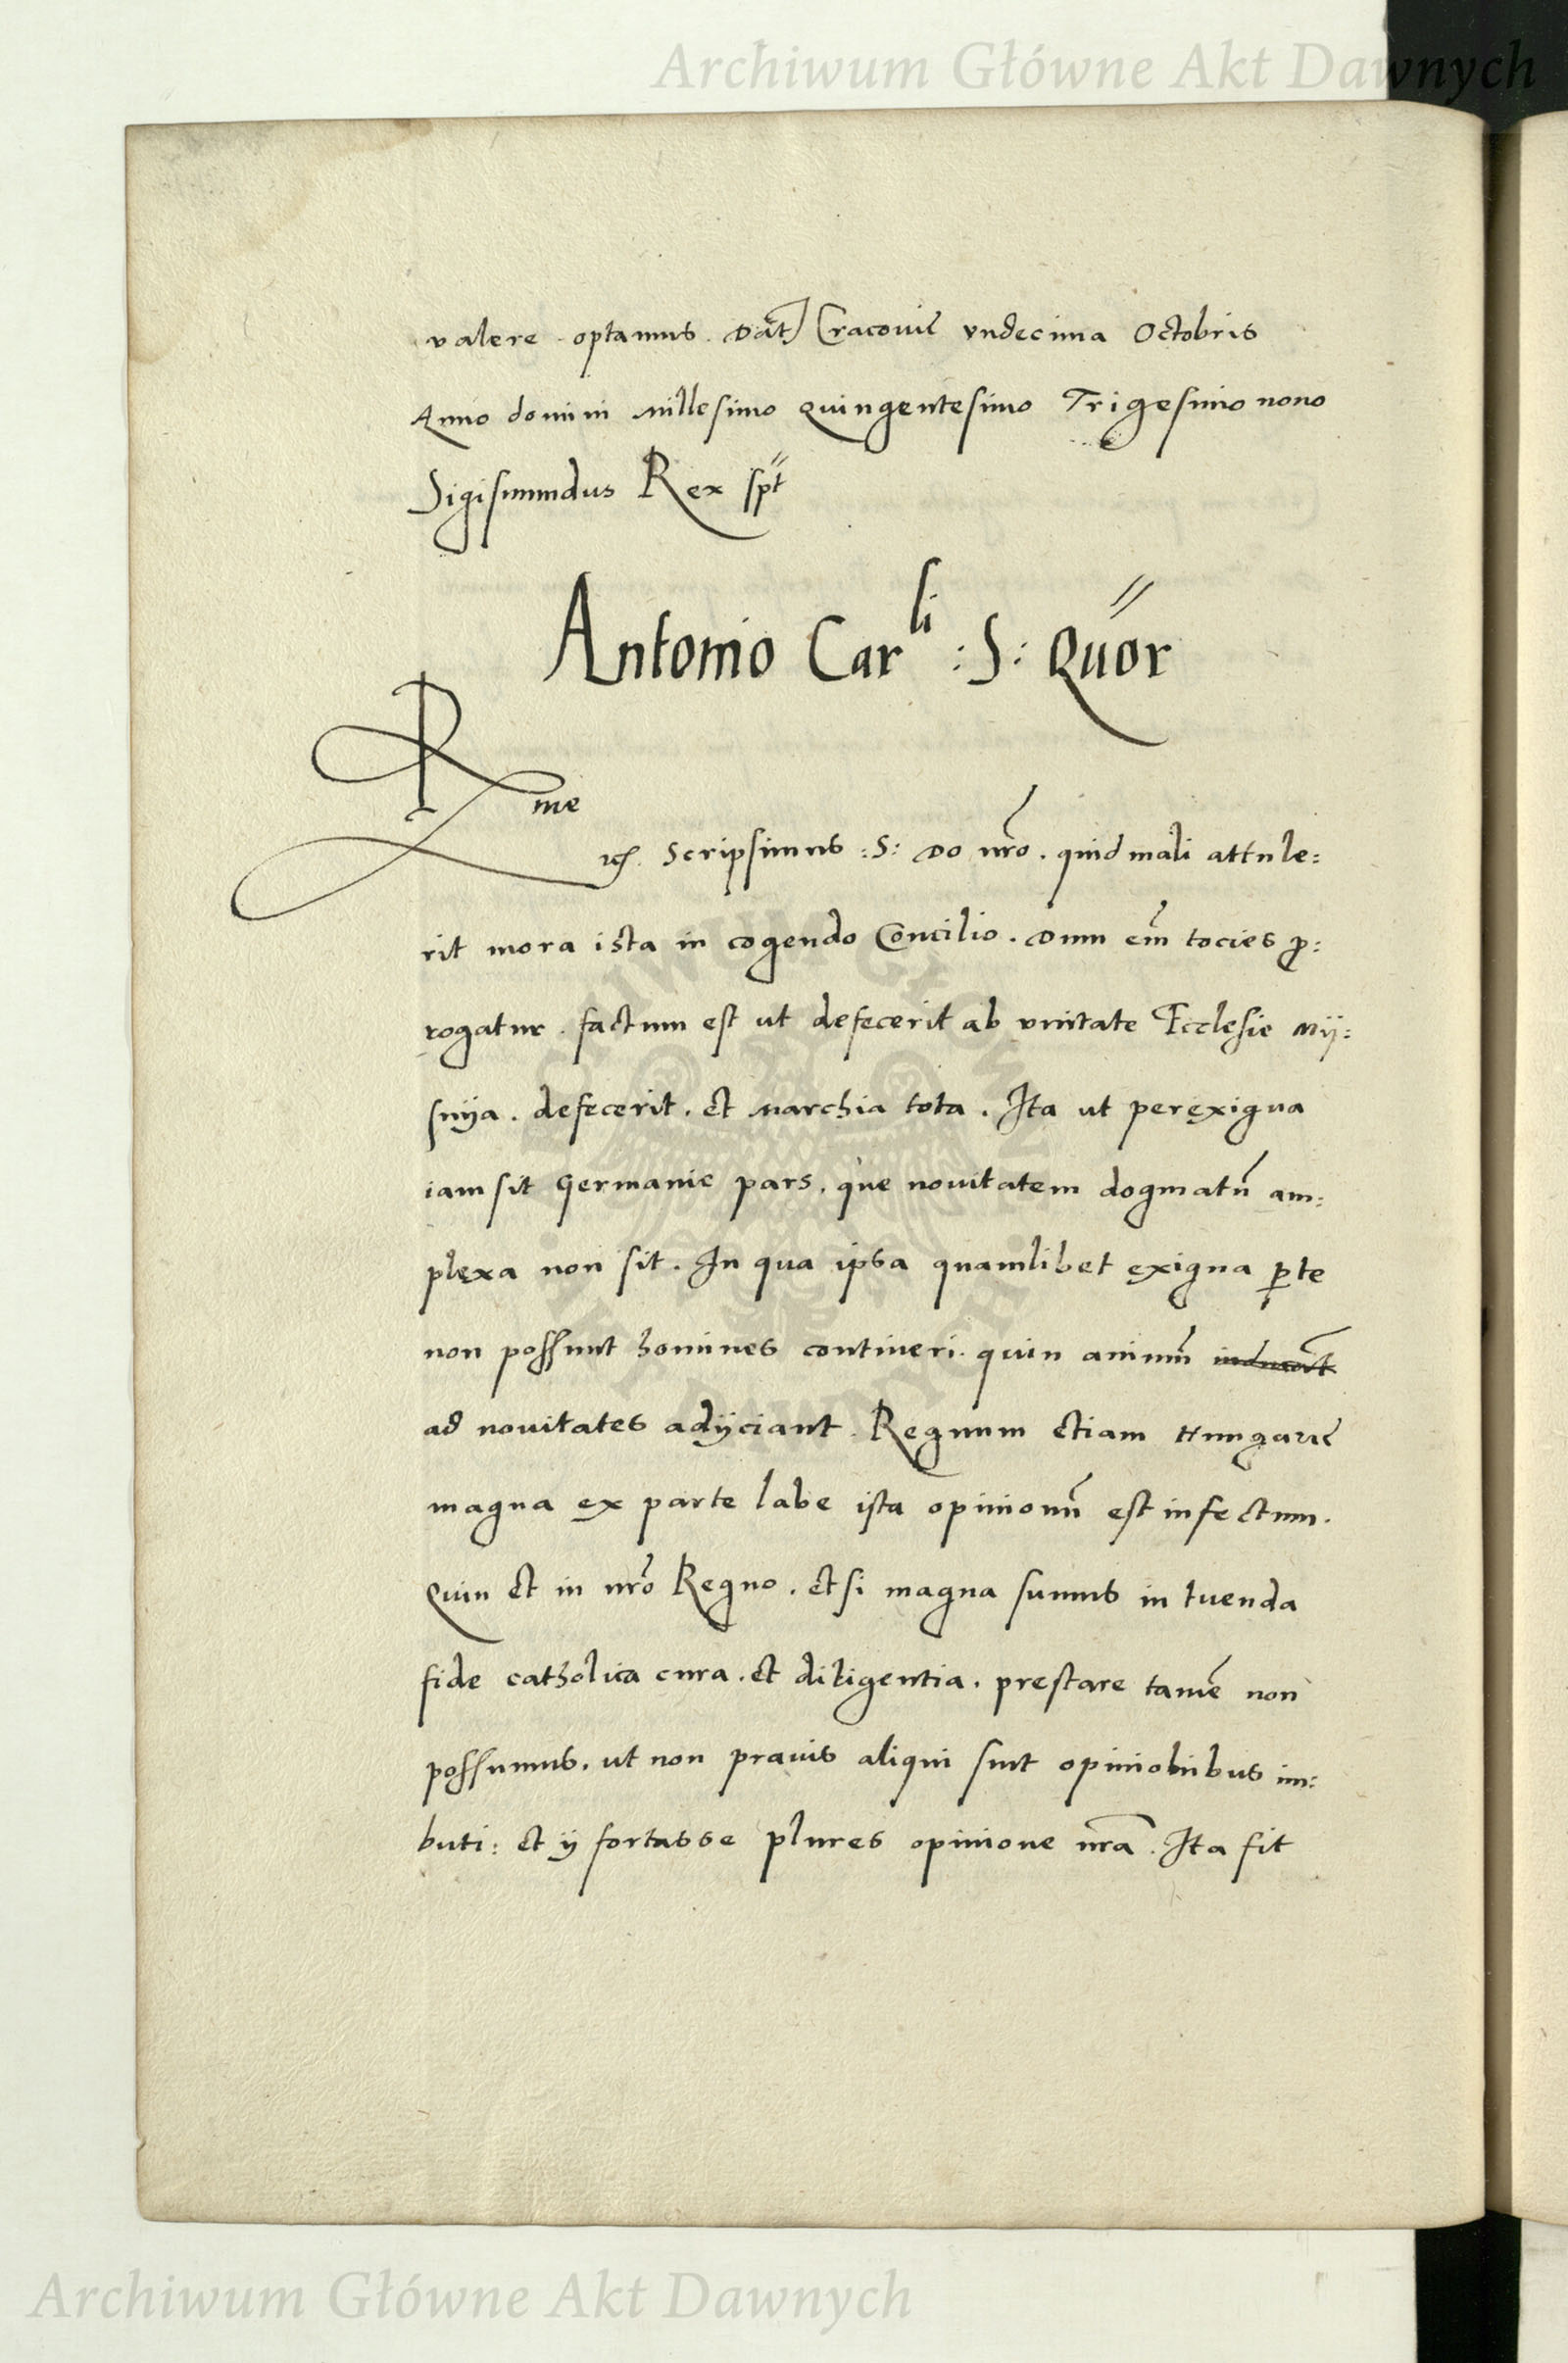 Archiwum Główne Akt Dawnych
valere optamus. Dat Cracovie undecima Octobris
Anno domini millesimo quingentesimo Trigesimo nono
Sigismundus Rex spt
Antonio Car li :S: Quor
R me
etc. Scripsimus :S: Do nro. quid mali attule:
rit mora ista in cogendo Concilio. Dum em tocies pro:
rogatur. factum est ut defecerit ab unitate Ecclesie My:
snya. defecerit. et Marchia tota. Ita ut perexigua
iam sit Germanie pars. que novitatem dogmatu am:
plexa non sit. In qua ipsa quamlibet exigua parte
non possunt homines contineri. quin animu
ad novitates adijciant. Regnum etiam Hungarie
magna ex parte labe ista opinionu est infectum.
Quin et in nro Regno. etsi magna sumus in tuenda
fide catholica cura. et diligentia. prestare tame non
possumus. ut non pravis aliqui sint opinionibus im:
buti: et ij fortasse plures opinione nra. Ita fit
Archiwum Główne Akt Dawnych